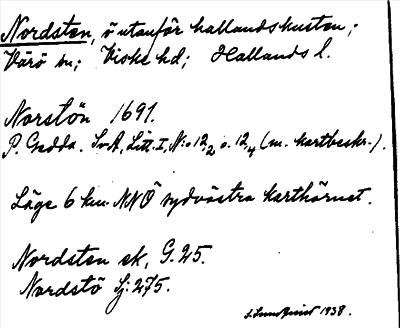 Nordsten, ö utanför hallandskusten;
Värö sn; Viske hd; Hallands l.
Norstön 1691.
P. Gedda. SvA, Litt. I, N:o 12₂ o. 12₄ (m. kartbeskr.).
Läge 6 km NNÖ sydvästra karthörnet.
Nordsten ek, G. 25.
Nordstö Sj: 275.
1938.